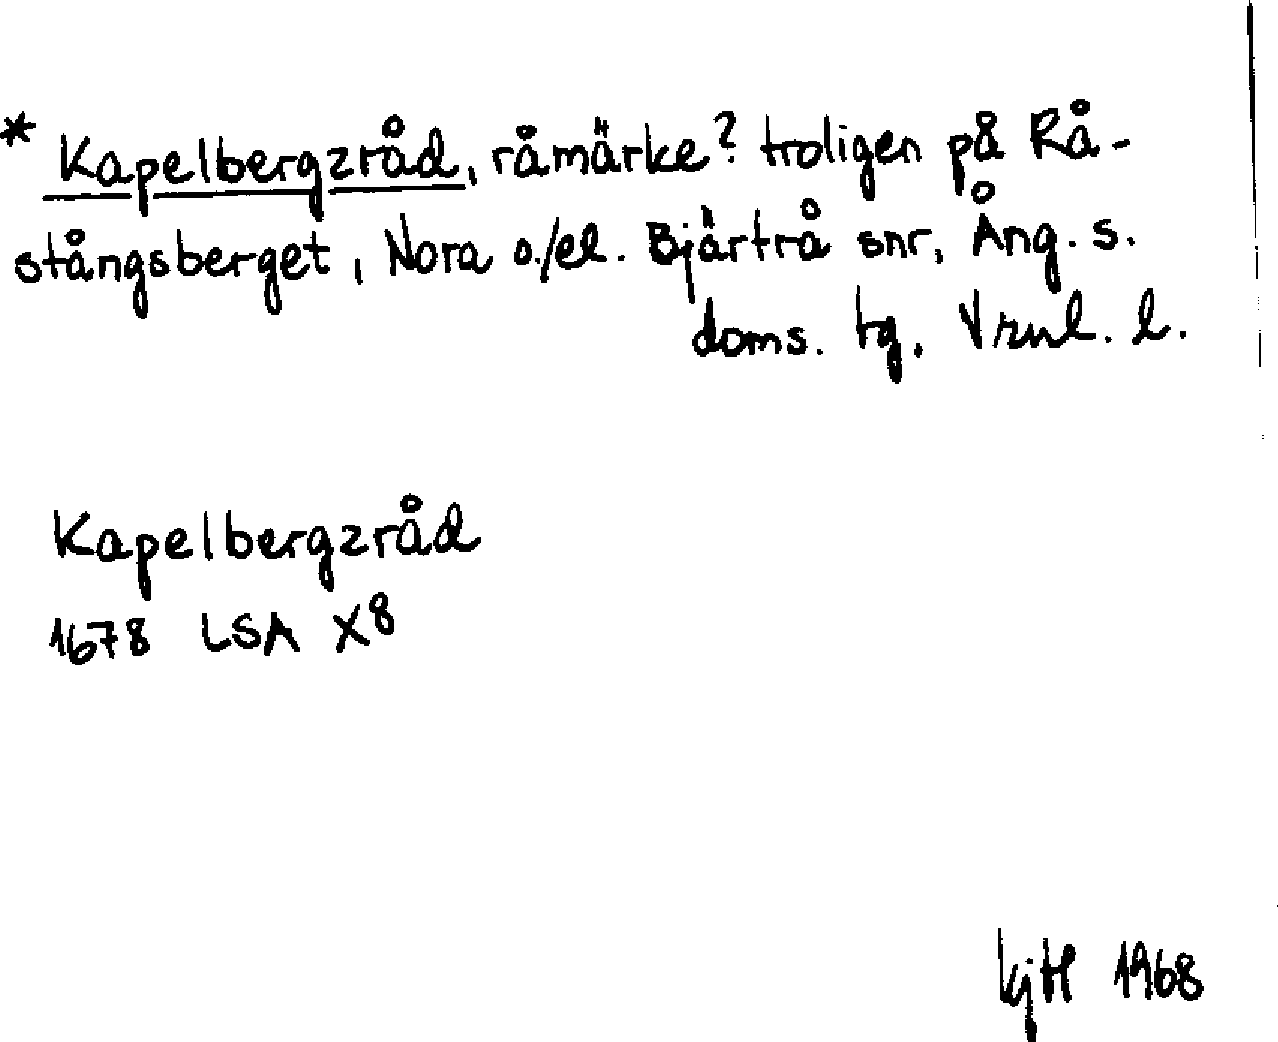 * Kapelbergzråd, råmärke? troligen på Rå-
stångsberget, Nora o./el. Bjärtrå snr, Ång. s.
doms. tg, Vrnl. l.
Kapelbergzråd
1678 LSA X8
KjH 1968